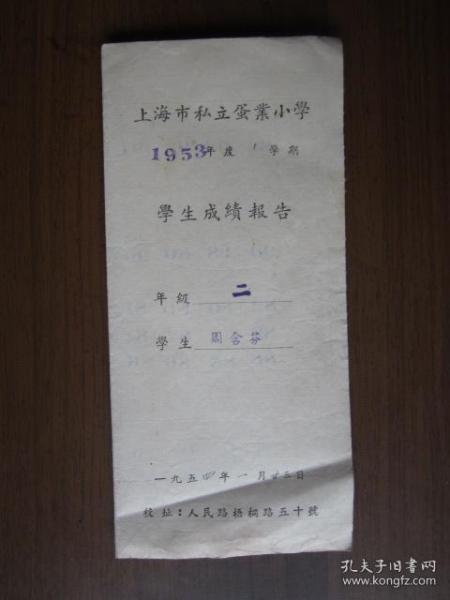 上海市私立蛋業小學
1953年度 1 學期
學生成績報告
年級 二
學生 周含芬
一九五四年一月廿三日
校址：人民路梧桐路五十號
孔夫子旧书网
www.kongfz.com